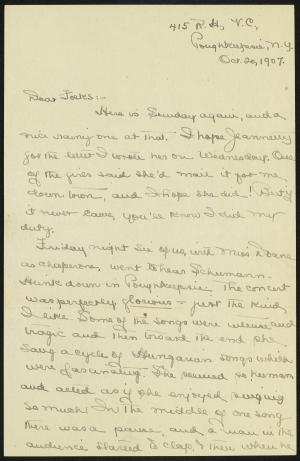 415 R.H., V.C.,
Poughkeepsie, N.Y.
Oct. 20, 1907.
Dear Folks:-
Here is Sunday again, and a
nice rainy one at that. I hope Jeannette
got the letter I wrote her on Wednesday. One
of the girls said she'd mail it for me
down town, and I hope she did! But if
it never came, you'll know I did my
duty.
Friday night six of us, with Miss
as chaperone, went to hear Schumann-
Heink down in Poughkeepsie. The concert
was perfectly glorious - just the kind
I like. Some of the songs were intense and
tragic and then toward the end she
sang a cycle of Hungarian songs which
were fascinating. She seemed so human,
and acted as if she enjoyed singing
so much! In the middle of one song
there was a pause, and a man in the
audience started to clap, & then when he